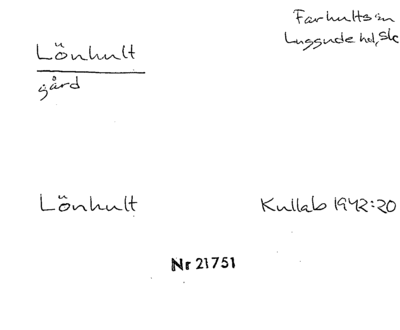 Farhults sn
Luggude hd, Sk
Lönhult
gård
Lönhult
Kullab 1942:20
Nr 21751